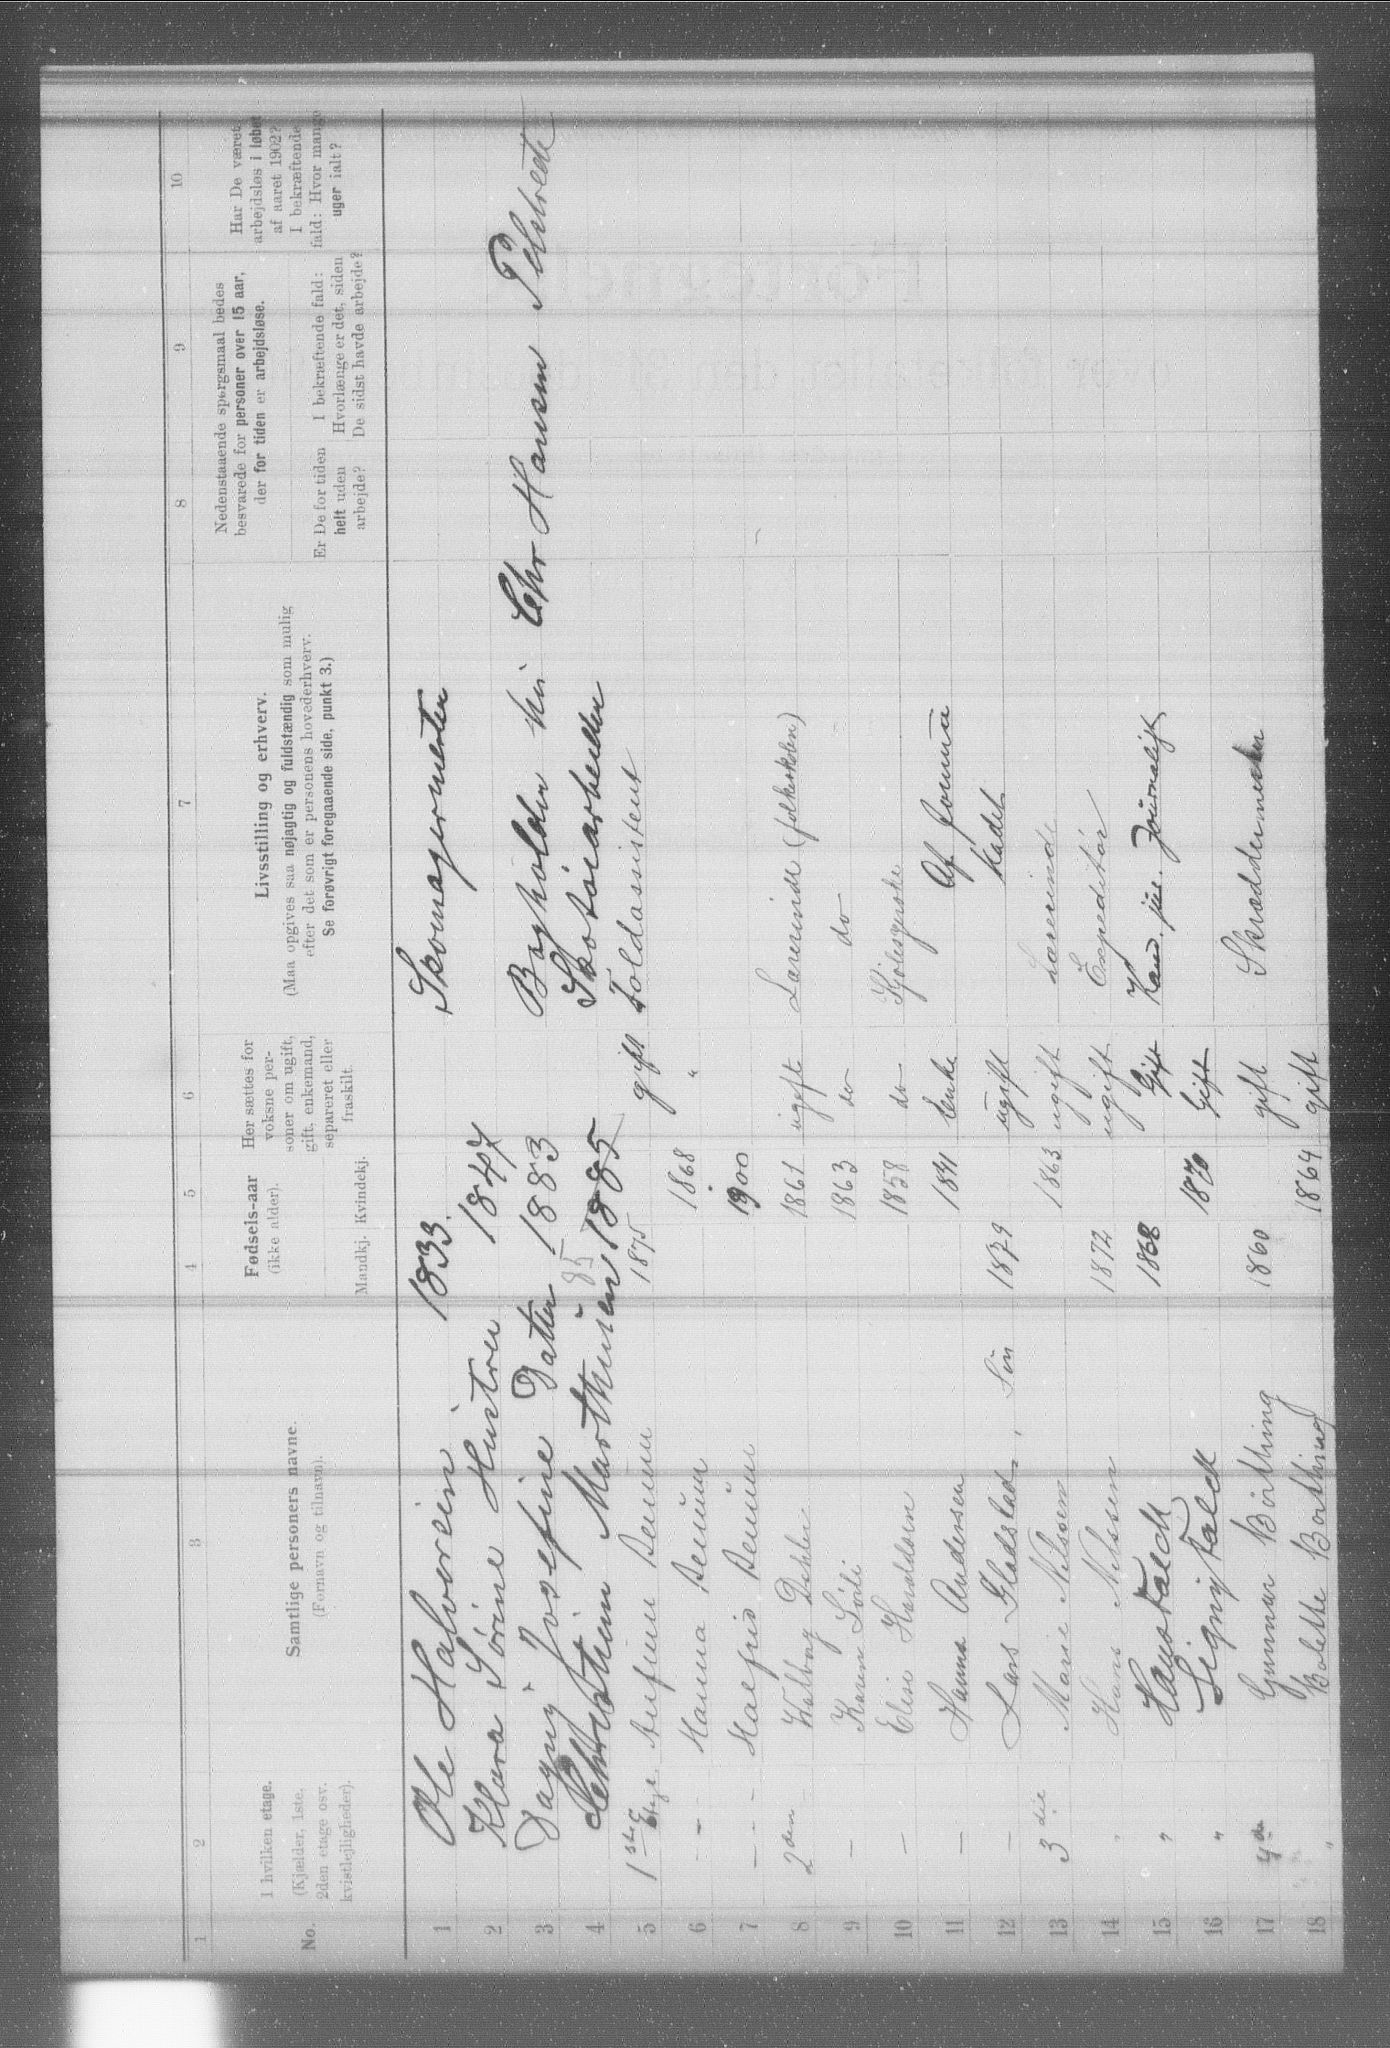 1 2 3 4 5 6 7 8 9 10
No.
I hvilken etage.
(Kjælder, 1ste,
2den etage osv.
kvistlejligheder).
Samtlige personers navne.
(Fornavn og tilnavn).
Fødsels-aar
(ikke alder).
Mandkj. Kvindekj.
Her sættes for
voksne per-
soner om ugift,
gift, enkemand,
separeret eller
fraskilt.
Livsstilling og erhverv.
(Maa opgives saa nøjagtig og fuldstændig som mulig
efter det som er personens hovederhverv.
Se forøvrigt foregaaende side, punkt 3.)
Nedenstaaende spørgsmaal bedes
besvarede for personer over 15 aar,
der for tiden er arbejdsløse.
Er De for tiden
helt uden
arbejde?
I bekræftende fald:
Hvorlænge er det, siden
De sidst havde arbejde?
Har De været
arbejdsløs i løbet
af aaret 1902?
I bekræftende
fald: Hvor mange
uger ialt?
1 Ole Halvorsen 1833. Skomagermester
2 Klara Sørine Hustru 1847
3 Dagny Josefine Datter 1883 Bogholder hos Chr Hansen
4 Marthinsen 85 1885 Skotøiarbeider
5 1ste Etage. Arfinn 1875 gift Toldassistent
6 - Hanna 1868 "
7 - - 1900
8 2den Valborg Dehler 1861 ugift Lærerinde (folkeskolen)
9 - Karen Sørli 1863 do do
10 - Elise Haraldsen 1858 do Kjolesyerske
11 - Hanna Andersen 1841 Enke
12 - Lars Gladstad, Søn 1879 ugift Kadet
13 3die Marie Nilssen 1863 ugift Lærerinde
14 " Hans Nilssen 1872 ugift Expeditør
15 " Hans Falck 1868 Gift Kand. jur. Journalist
16 " Signy Falck 1870 Gift
17 4de Gunnar Børthing 1860 gift Skræddermester
18 " Bolette Børthing 1864 gift